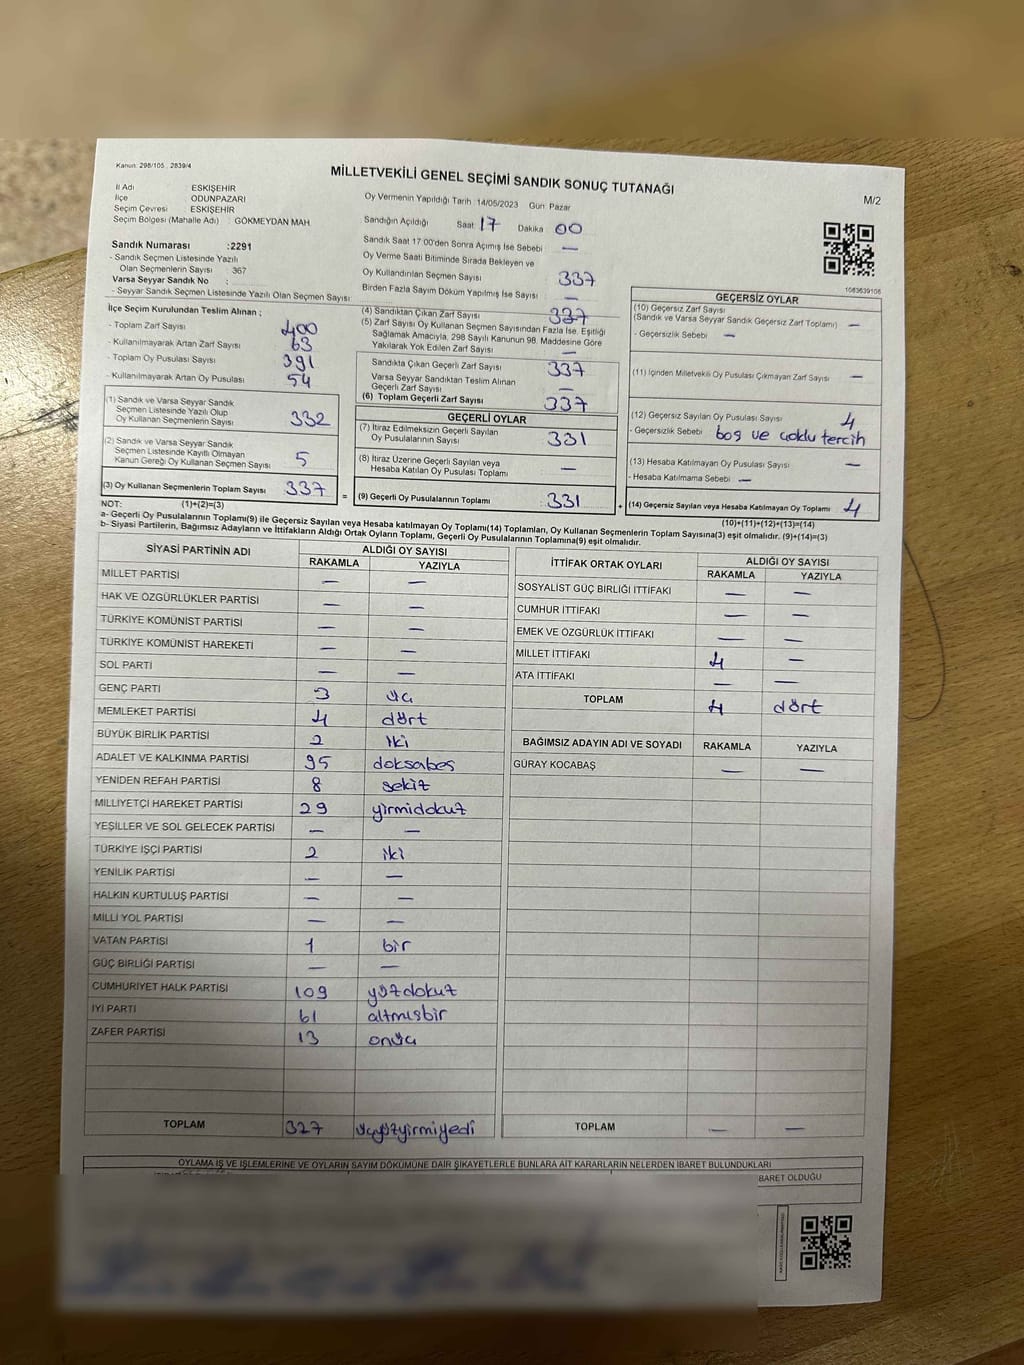 Kanun: 298/105 , 2839/4
MİLLETVEKİLİ GENEL SEÇİMİ SANDIK SONUÇ TUTANAĞI
M/2
İl Adı ESKİŞEHİR
İlçe ODUNPAZARI
Seçim Çevresi ESKİŞEHİR
Seçim Bölgesi (Mahalle Adı) : GÖKMEYDAN MAH.
Sandık Numarası :2291
- Sandık Seçmen Listesinde Yazılı
Olan Seçmenlerin Sayısı : 367
Varsa Seyyar Sandık No :
- Seyyar Sandık Seçmen Listesinde Yazılı Olan Seçmen Sayısı
Oy Vermenin Yapıldığı Tarih : 14/05/2023 Gün: Pazar
Sandığın Açıldığı Saat 17 Dakika 00
Sandık Saat 17:00'den Sonra Açılmış İse Sebebi —
Oy Verme Saati Bitiminde Sırada Bekleyen ve
Oy Kullandırılan Seçmen Sayısı 337
Birden Fazla Sayım Döküm Yapılmış İse Sayısı —
1083639108
İlçe Seçim Kurulundan Teslim Alınan ;
- Toplam Zarf Sayısı 400
- Kullanılmayarak Artan Zarf Sayısı 63
- Toplam Oy Pusulası Sayısı 391
- Kullanılmayarak Artan Oy Pusulası 54
(1) Sandık ve Varsa Seyyar Sandık
Seçmen Listesinde Yazılı Olup
Oy Kullanan Seçmenlerin Sayısı 332
(2) Sandık ve Varsa Seyyar Sandık
Seçmen Listesinde Kayıtlı Olmayan
Kanun Gereği Oy Kullanan Seçmen Sayısı 5
(3) Oy Kullanan Seçmenlerin Toplam Sayısı 337
(1)+(2)=(3)
(4) Sandıktan Çıkan Zarf Sayısı 337
(5) Zarf Sayısı Oy Kullanan Seçmen Sayısından Fazla İse, Eşitliği
Sağlamak Amacıyla, 298 Sayılı Kanunun 98. Maddesine Göre
Yakılarak Yok Edilen Zarf Sayısı —
Sandıkta Çıkan Geçerli Zarf Sayısı 337
Varsa Seyyar Sandıktan Teslim Alınan
Geçerli Zarf Sayısı —
(6) Toplam Geçerli Zarf Sayısı 337
GEÇERLİ OYLAR
(7) İtiraz Edilmeksizin Geçerli Sayılan
Oy Pusulalarının Sayısı 331
(8) İtiraz Üzerine Geçerli Sayılan veya
Hesaba Katılan Oy Pusulası Toplamı —
= (9) Geçerli Oy Pusulalarının Toplamı 331 +
GEÇERSİZ OYLAR
(10) Geçersiz Zarf Sayısı
(Sandık ve Varsa Seyyar Sandık Geçersiz Zarf Toplamı) —
- Geçersizlik Sebebi —
(11) İçinden Milletvekili Oy Pusulası Çıkmayan Zarf Sayısı —
(12) Geçersiz Sayılan Oy Pusulası Sayısı 4
- Geçersizlik Sebebi boş ve çoklu tercih
(13) Hesaba Katılmayan Oy Pusulası Sayısı —
- Hesaba Katılmama Sebebi —
(14) Geçersiz Sayılan veya Hesaba Katılmayan Oy Toplamı 4
(10)+(11)+(12)+(13)=(14)
NOT:
a- Geçerli Oy Pusulalarının Toplamı(9) ile Geçersiz Sayılan veya Hesaba katılmayan Oy Toplamı(14) Toplamları, Oy Kullanan Seçmenlerin Toplam Sayısına(3) eşit olmalıdır. (9)+(14)=(3)
b- Siyasi Partilerin, Bağımsız Adayların ve İttifakların Aldığı Ortak Oyların Toplamı, Geçerli Oy Pusulalarının Toplamına(9) eşit olmalıdır.
SİYASİ PARTİNİN ADI ALDIĞI OY SAYISI
RAKAMLA YAZIYLA
MİLLET PARTİSİ — —
HAK VE ÖZGÜRLÜKLER PARTİSİ — —
TÜRKİYE KOMÜNİST PARTİSİ — —
TÜRKİYE KOMÜNİST HAREKETİ — —
SOL PARTİ — —
GENÇ PARTİ 3 üç
MEMLEKET PARTİSİ 4 dört
BÜYÜK BİRLİK PARTİSİ 2 iki
ADALET VE KALKINMA PARTİSİ 95 doksabeş
YENİDEN REFAH PARTİSİ 8 sekiz
MİLLİYETÇİ HAREKET PARTİSİ 29 yirmidokuz
YEŞİLLER VE SOL GELECEK PARTİSİ — —
TÜRKİYE İŞÇİ PARTİSİ 2 iki
YENİLİK PARTİSİ — —
HALKIN KURTULUŞ PARTİSİ — —
MİLLİ YOL PARTİSİ — —
VATAN PARTİSİ 1 bir
GÜÇ BİRLİĞİ PARTİSİ — —
CUMHURİYET HALK PARTİSİ 109 yüzdokuz
İYİ PARTİ 61 altmışbir
ZAFER PARTİSİ 13 onüç
TOPLAM 327 üçyüzyirmiyedi
İTTİFAK ORTAK OYLARI ALDIĞI OY SAYISI
RAKAMLA YAZIYLA
SOSYALİST GÜÇ BİRLİĞİ İTTİFAKI — —
CUMHUR İTTİFAKI — —
EMEK VE ÖZGÜRLÜK İTTİFAKI — —
MİLLET İTTİFAKI 4 —
ATA İTTİFAKI — —
TOPLAM 4 dört
BAĞIMSIZ ADAYIN ADI VE SOYADI RAKAMLA YAZIYLA
GÜRAY KOCABAŞ — —
TOPLAM — —
OYLAMA İŞ VE İŞLEMLERİNE VE OYLARIN SAYIM DÖKÜMÜNE DAİR ŞİKAYETLERLE BUNLARA AİT KARARLARIN NELERDEN İBARET BULUNDUKLARI
BARET OLDUĞU